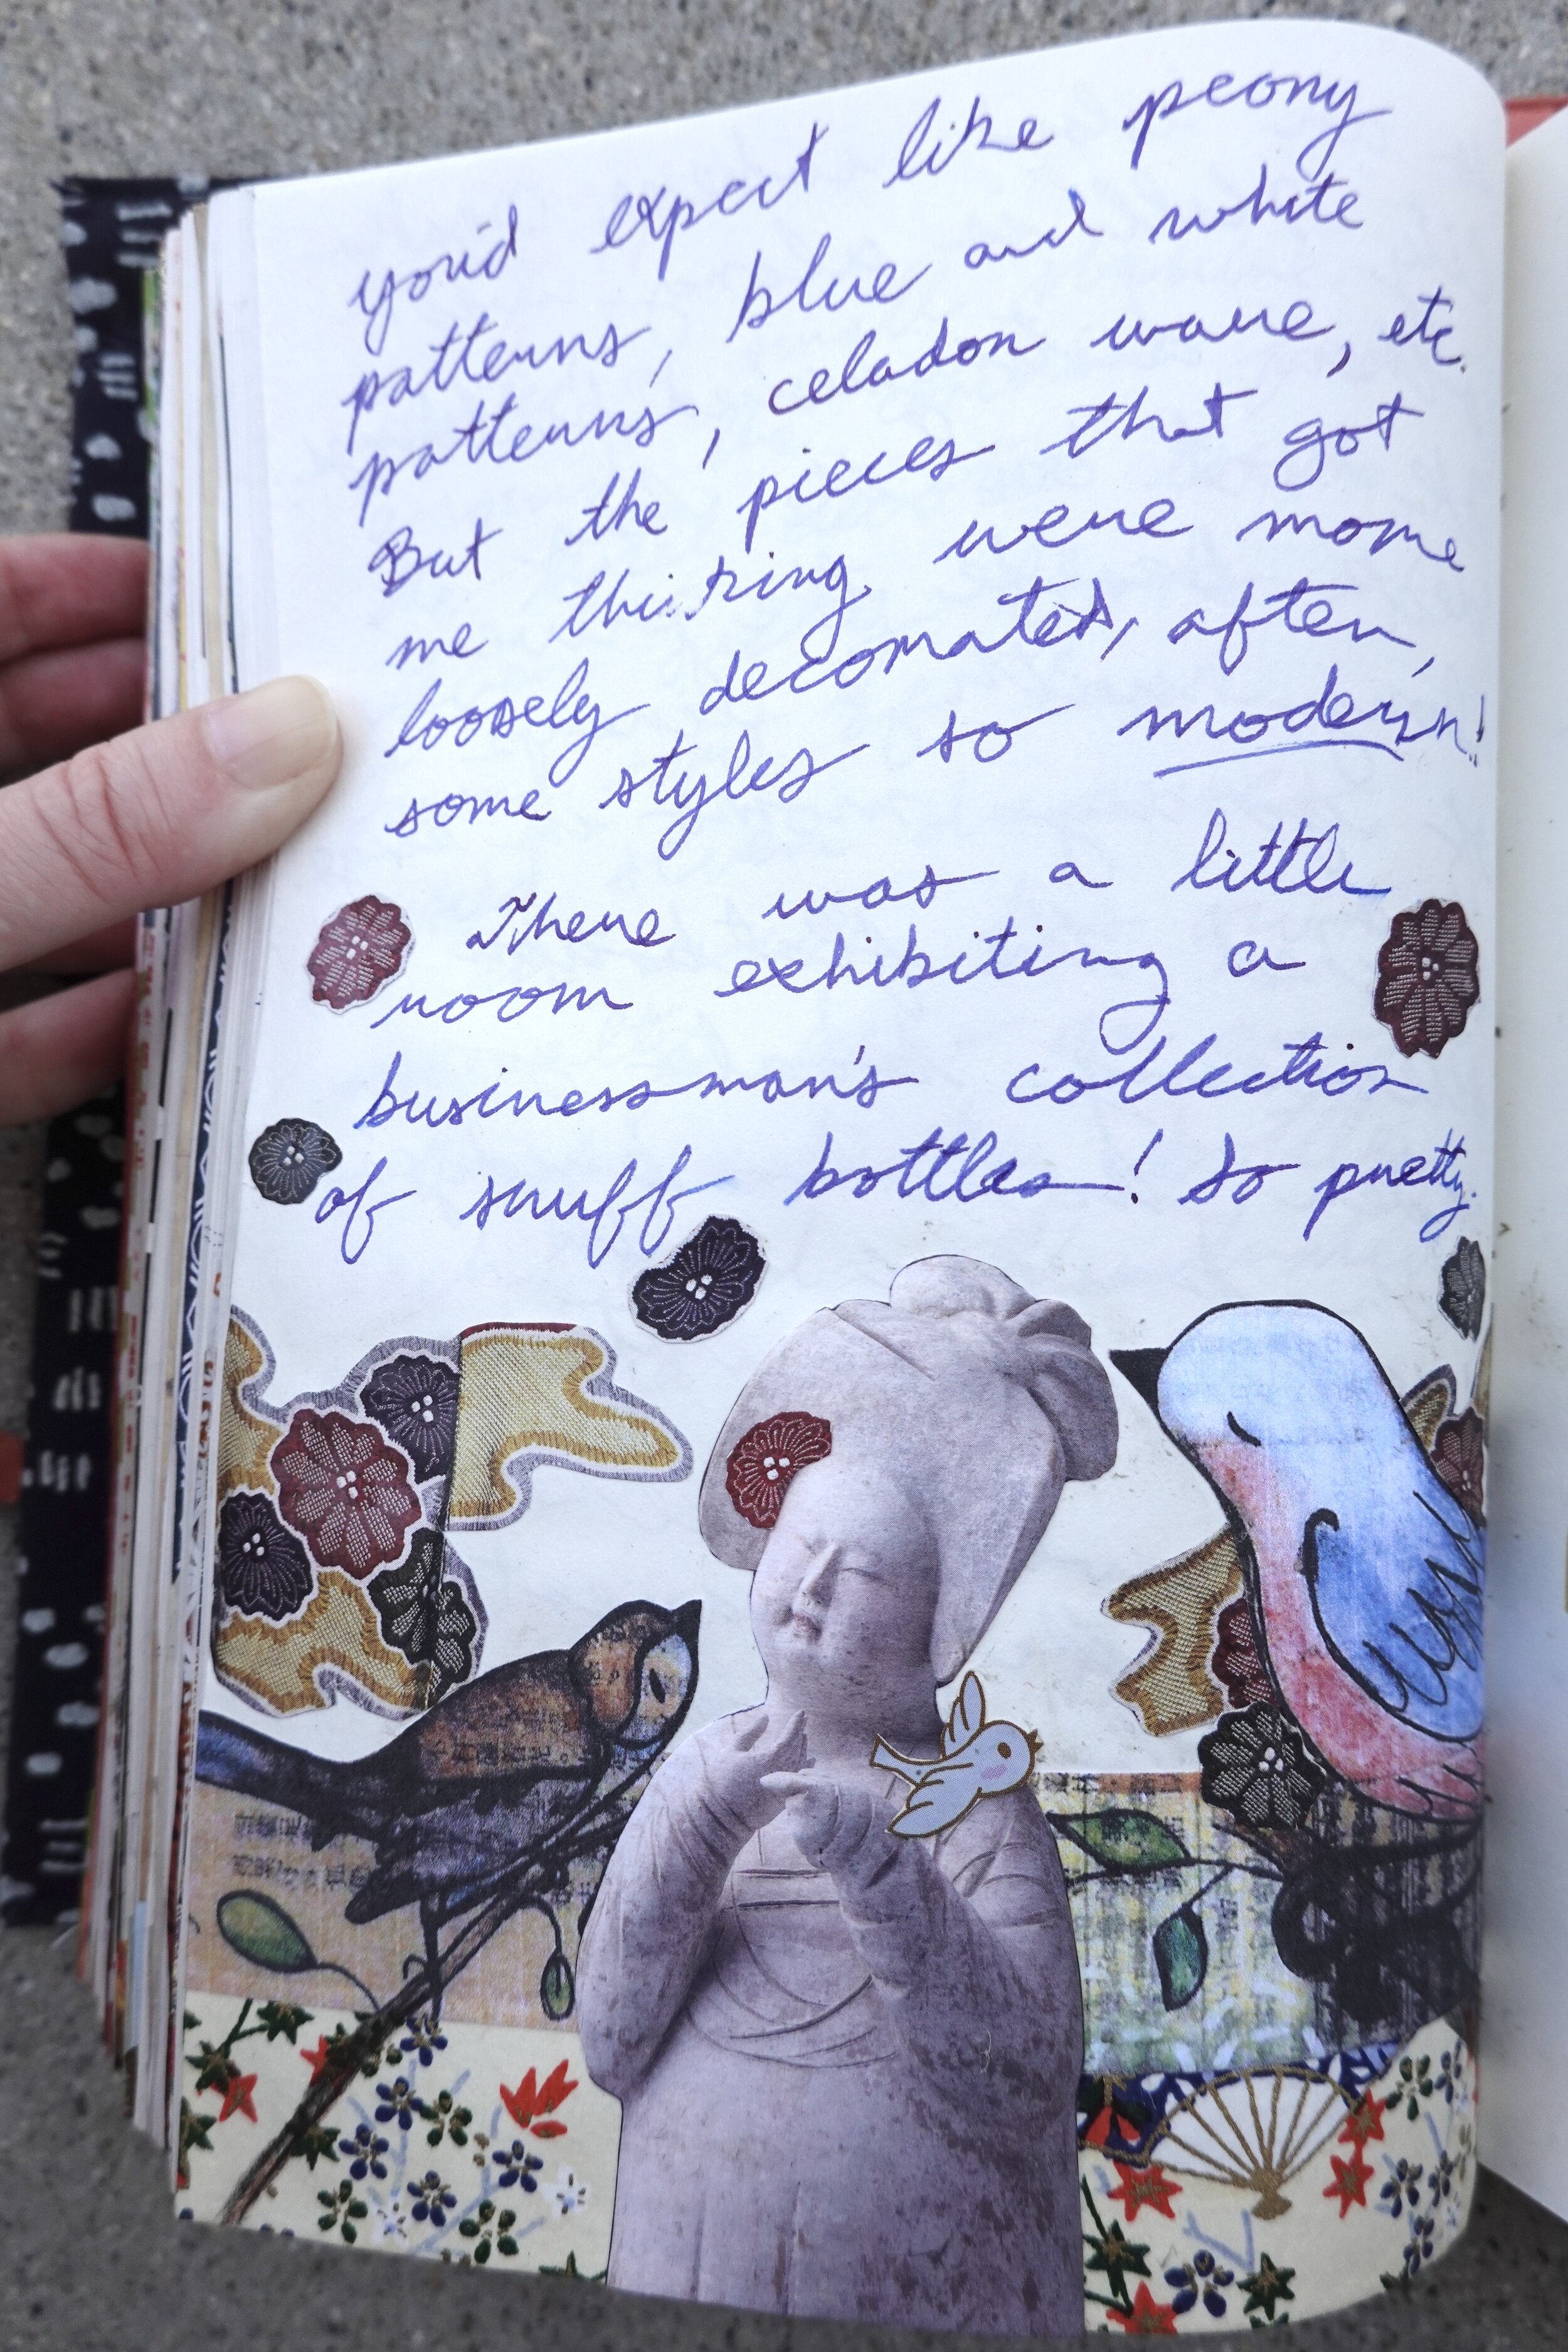 you'd expect like peony
patterns, blue and white
patterns, celadon ware, etc.
But the pieces that got
me thinking were more
loosely decorated, often,
some styles so modern!
There was a little
room exhibiting a
businessman's collection
of snuff bottles! So pretty.